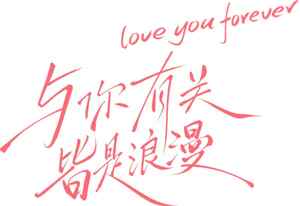 love you forever
与你有关
皆是浪漫